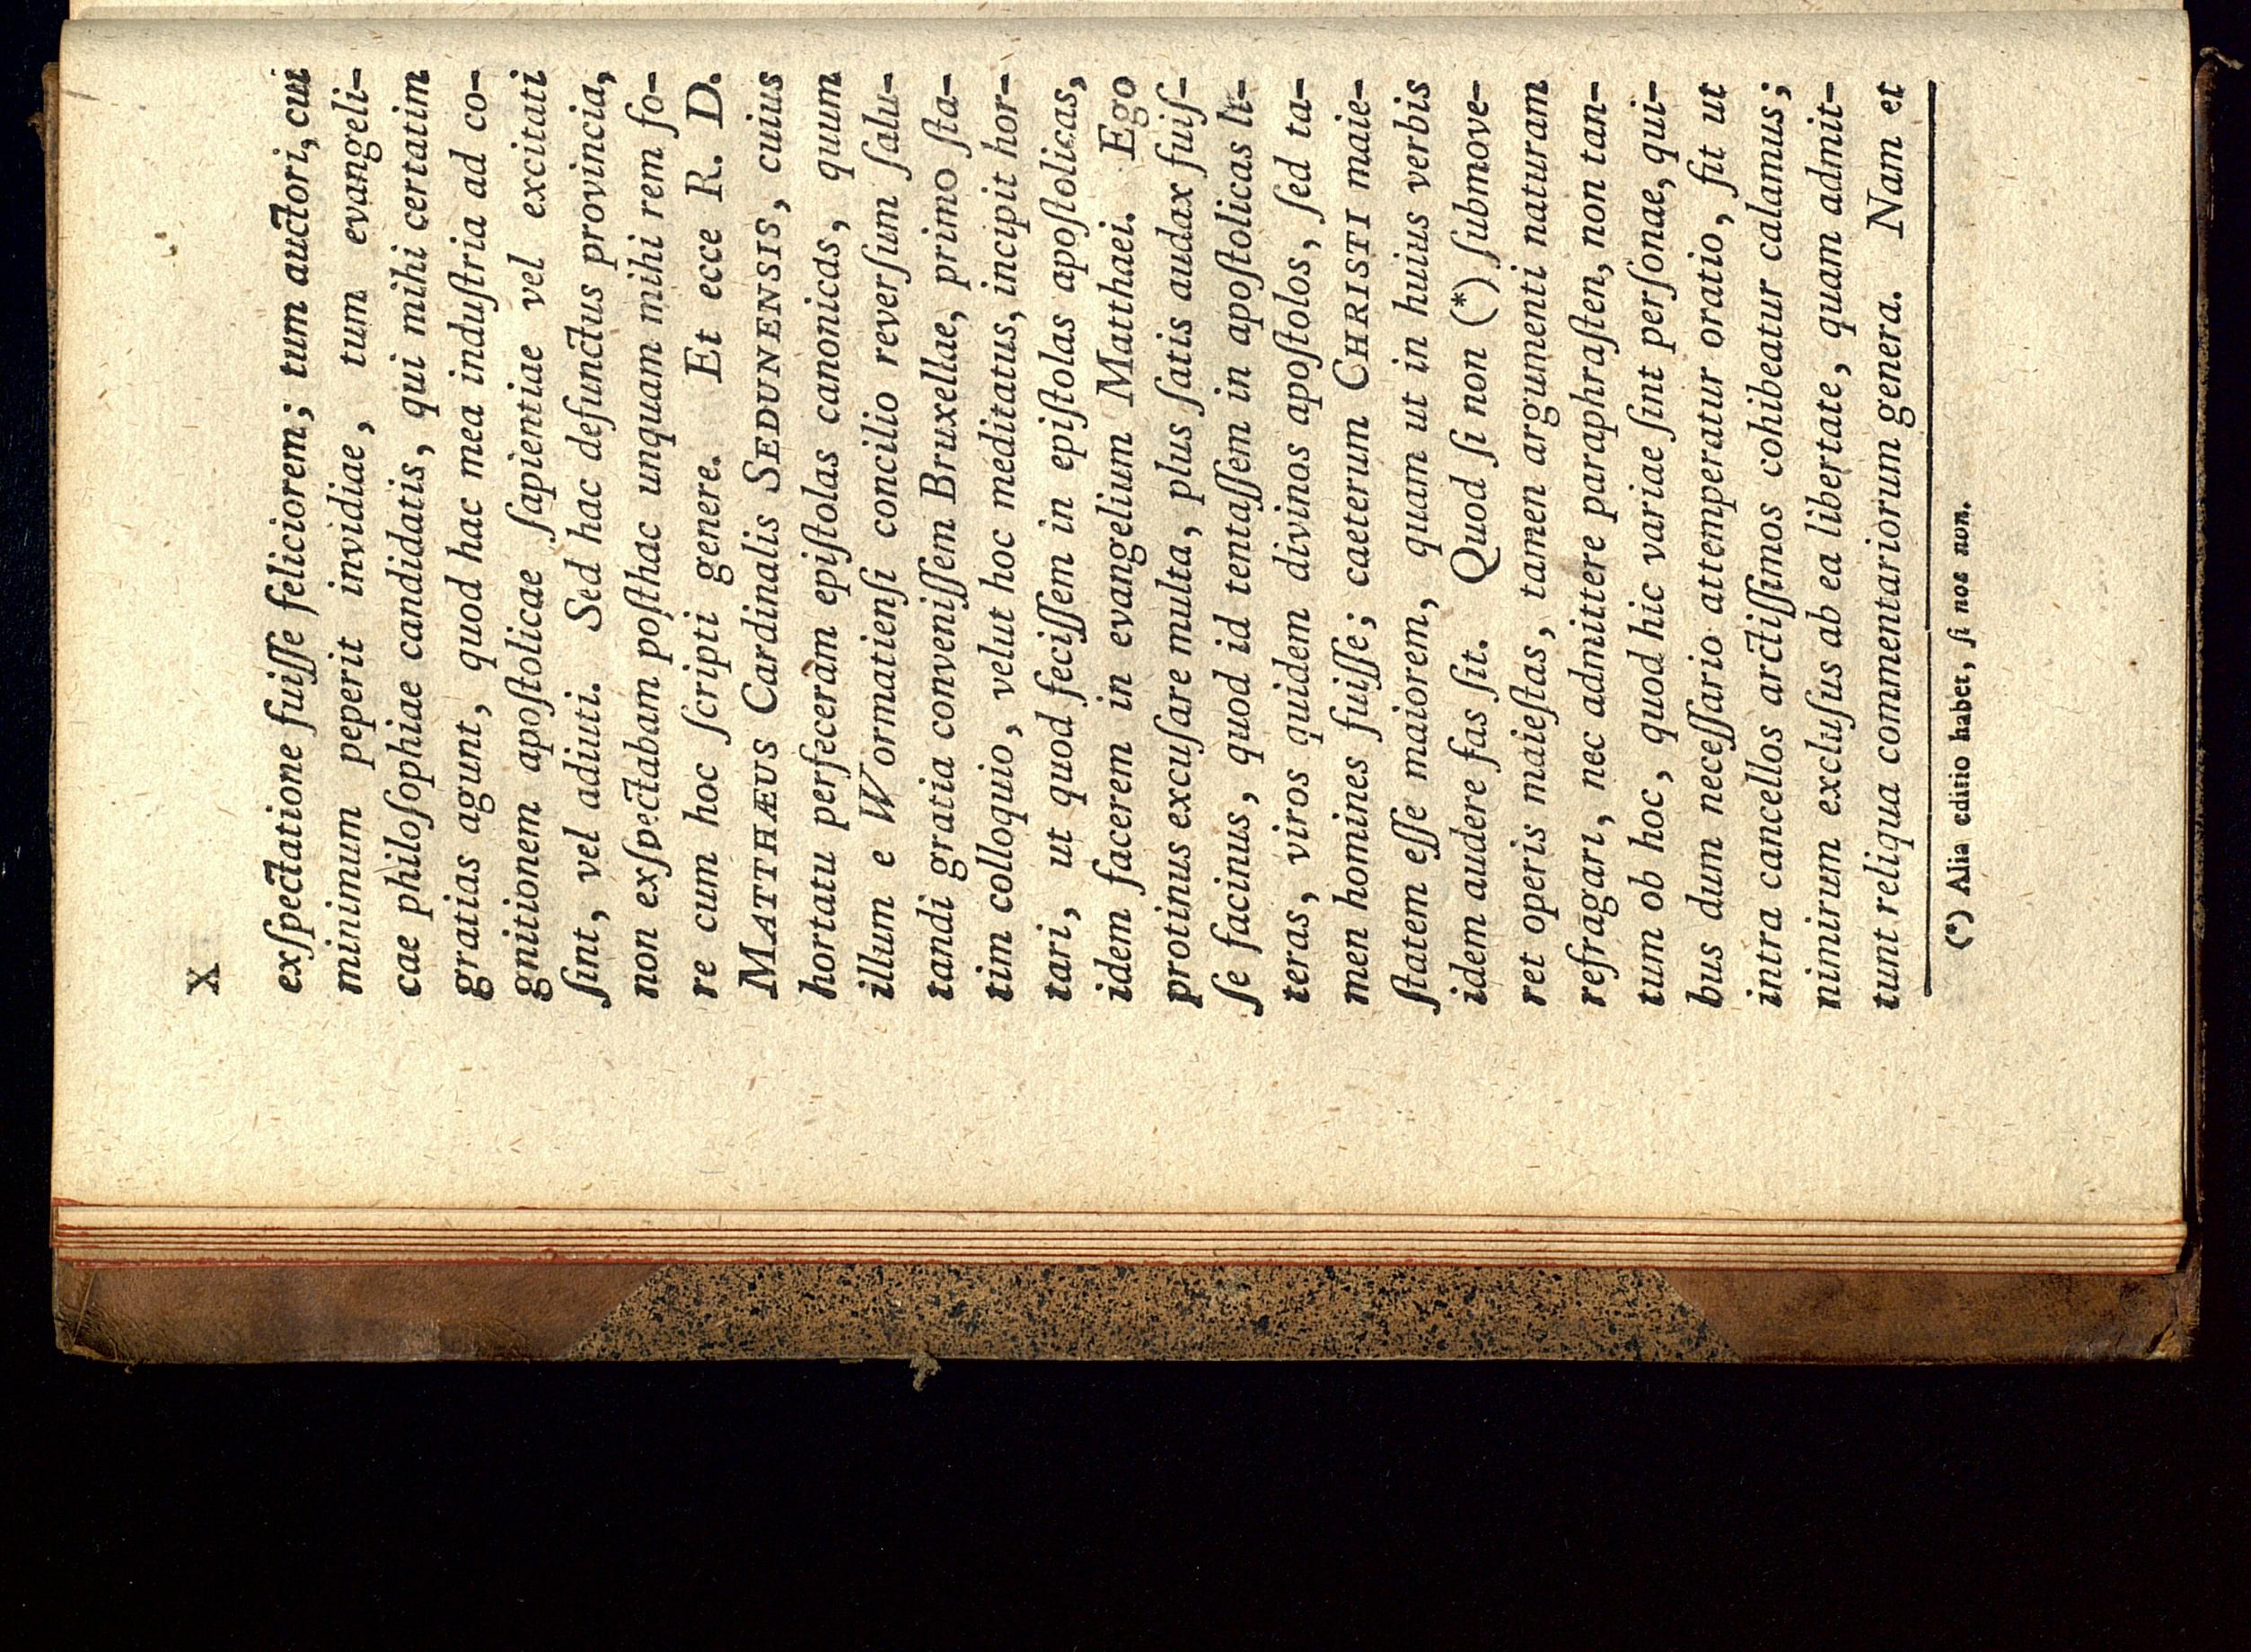 X
exſpectatione fuiſſe feliciorem; tum auctori, cui
minimum peperit invidiae, tum evangeli-
cae philoſophiae candidatis, qui mihi certatim
gratias agunt, quod hac mea induſtria ad co-
gnitionem apoſtolicae ſapientiae vel excitati
ſint, vel adiuti. Sed hac defunctus provincia,
non exſpectabam poſthac unquam mihi rem fo-
re cum hoc ſcripti genere. Et ecce R. D.
MATTHÆUS Cardinalis SEDUNENSIS, cuius
hortatu perfeceram epiſtolas canonicas, quum
illum e Wormatienſi concilio reverſum ſalu-
tandi gratia conveniſſem Bruxellae, primo ſta-
tim colloquio, velut hoc meditatus, incipit hor-
tari, ut quod feciſſem in epiſtolas apoſtolicas,
idem facerem in evangelium Matthaei. Ego
protinus excuſare multa, plus ſatis audax fuiſ-
ſe facinus, quod id tentaſſem in apoſtolicas li-
teras, viros quidem divinos apoſtolos, ſed ta-
men homines fuiſſe; caeterum CHRISTI maie-
ſtatem eſſe maiorem, quam ut in huius verbis
idem audere fas ſit. Quod ſi non (*) ſubmove-
ret operis maieſtas, tamen argumenti naturam
refragari, nec admittere paraphraſten, non tan-
tum ob hoc, quod hic variae ſint perſonae, qui-
bus dum neceſſario attemperatur oratio, fit ut
intra cancellos arctiſſimos cohibeatur calamus;
nimirum excluſus ab ea libertate, quam admit-
tunt reliqua commentariorum genera. Nam et
(*) Alia editio habet, ſi nos non.